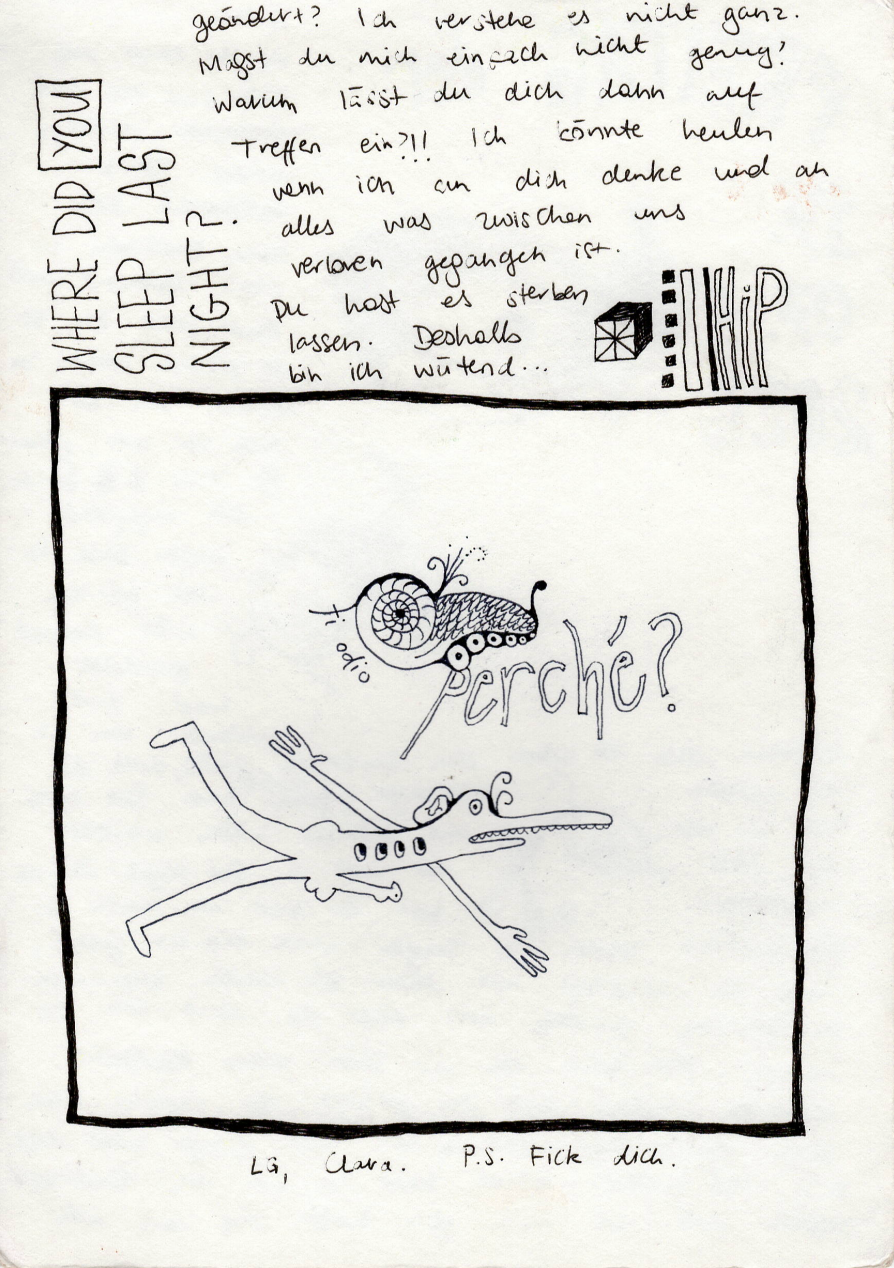 geändert? Ich verstehe es nicht ganz.
Magst du mich einfach nicht genug?
Warum lässt du dich dann auf
Treffen ein?!! Ich könnte heulen
wenn ich an dich denke und an
alles was zwischen uns
verloren gegangen ist.
Du hast es sterben
lassen. Deshalb
bin ich wütend...
WHERE DID YOU
SLEEP LAST
NIGHT?
HiP
ti odio
Perché?
LG, Clara. P.S. Fick dich.